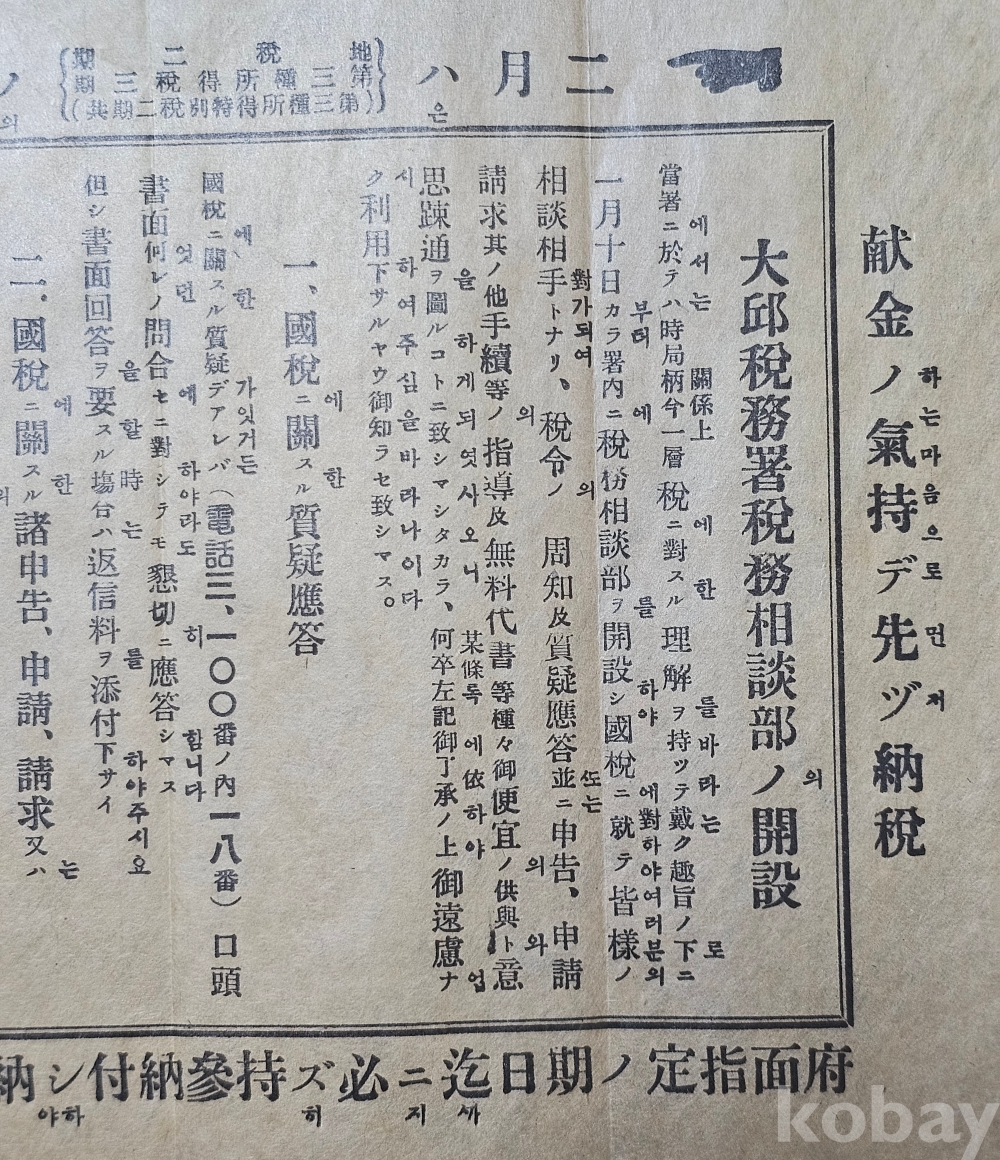 二月ハ
은
地税二期
第三種所得税三期
(第三種所得特別税二期共)
ノ
의
献金ノ氣持デ先ヅ納税
하는마음으로 먼저
大邱税務署税務相談部ノ開設
의
에서는 關係上 에 한 를바라는 로
當署ニ於テハ時局柄今一層税ニ對スル理解ヲ持ツテ戴ク趣旨ノ下ニ
부터 에 를 하야 에對하야여러분의
一月十日カラ署内ニ税務相談部ヲ開設シ國税ニ就テ皆樣ノ
對가되여 의 또는
相談相手トナリ、税令ノ周知及質疑應答並ニ申告、申請
의 의 와
請求其ノ他手續等ノ指導及無料代書等種々御便宜ノ供與ト意
을 하게되엿사오니 某條록 에依하야 업
思疎通ヲ圖ルコトニ致シマシタカラ、何卒左記御了承ノ上御遠慮ナ
시 하여주심을바라나이다
ク利用下サルヤウ御知ラセ致シマス。
에 한
一、國税ニ關スル質疑應答
에 한 가잇거든
國税ニ關スル質疑デアレバ(電話三、一〇〇番ノ内一八番)口頭
엇던 에 하야라도 히 함니다
書面何レノ問合セニ對シテモ懇切ニ應答シマス
을 할時는 를 하야주시요
但シ書面回答ヲ要スル場合ハ返信料ヲ添付下サイ
에 한 는
二、國税ニ關スル諸申告、申請、請求又ハ
의
府面指定ノ期日迄ニ必ズ持參納付シ納
까지 히 하야
kobay